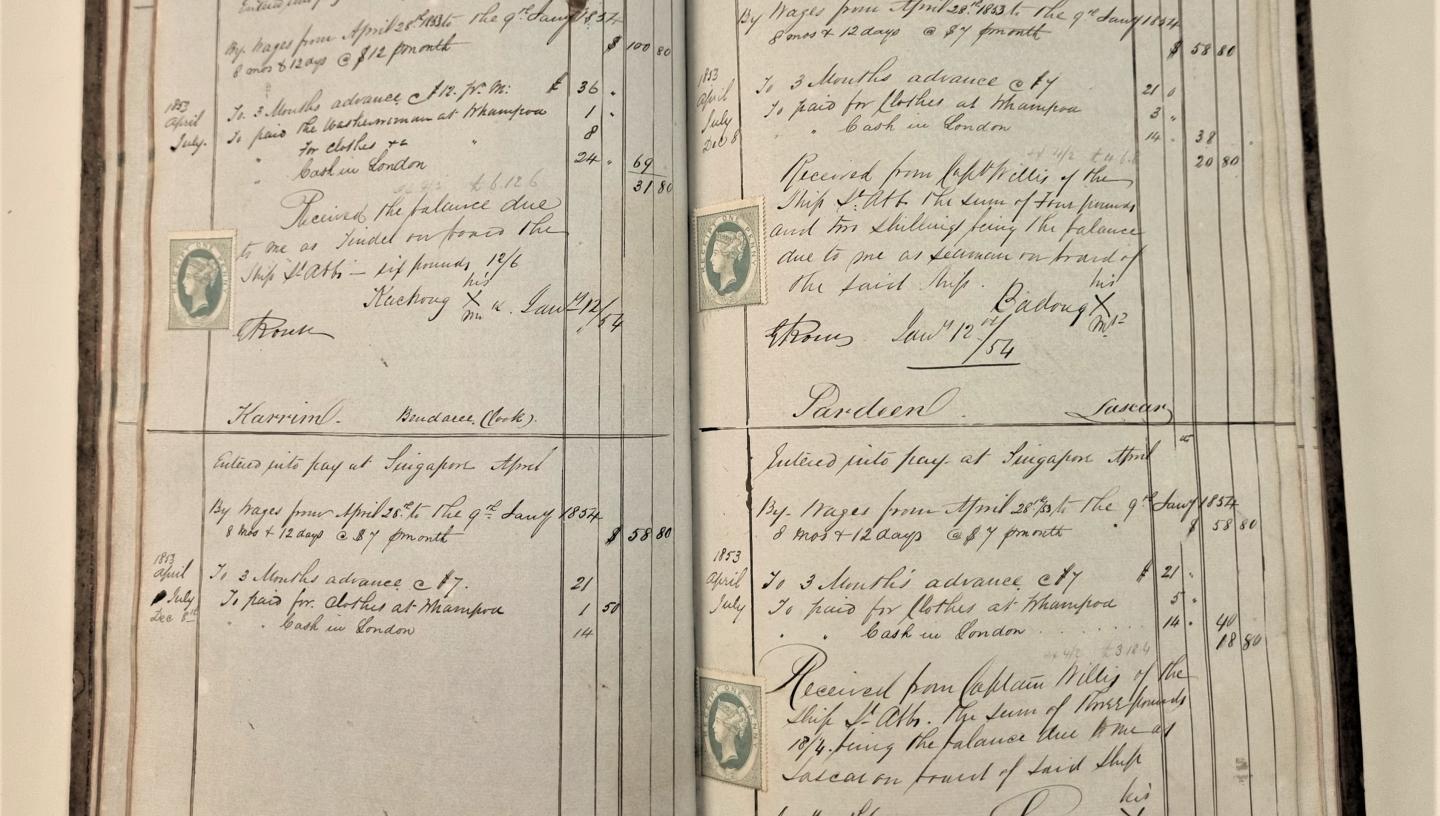 By Wages from April 28th 1853 to the 9th Jany 1854
8 mos & 12 days @ $12 pmonth $ 100 80
1853
April To 3 Months advance @ $12 pr. M: $ 36 "
July. To paid the Washerwoman at Whampoa 1 "
" For clothes &c " 8
" Cash in London 24 " 69
31 80
£6.12 6
Received the balance due
to me as Tindel on board the
Ship St Abbs — six pounds 12/6
his
Kachong X Jany 12/54
Karrim. Bendaree (Cook).
Entered into pay at Singapore April
By Wages from April 28th to the 9th Jany 1854
8 mos & 12 days @ $7 pmonth $ 58 80
1853
April To 3 Months advance @ $7. 21
July To paid for Clothes at Whampoa 1 50
Dec 8th " " Cash in London 14
By Wages from April 28th 1853 to the 9th Jany 1854
8 mos & 12 days @ $7 pmonth $ 58 80
1853
April To 3 Months advance @ $7 21 0
July To paid for Clothes at Whampoa 3 "
Dec 8 " Cash in London 14 " 38
20 80
Received from Capt Willis of the
Ship St Abb the sum of Four pounds
and two shillings being the balance
due to me as seaman on board of
the said ship. his
Badong X
Jany 12th/54
Pardeen. Lascar
Entered into pay at Singapore April
By Wages from April 28th/53 to the 9th Jany 1854
8 mos & 12 days @ $7 pmonth $ 58 80
1853
April To 3 Month's advance @ $7 $ 21 "
July To paid for Clothes at Whampoa 5 "
" " Cash in London 14 " 40
18 80
£3 18 4
Received from Captain Willis of the
Ship St Abbs. The sum of Three pounds
18/4. being the balance due to me as
Lascar on board of said Ship
his
RECEIPT ONE PENNY
RECEIPT ONE PENNY
RECEIPT ONE PENNY